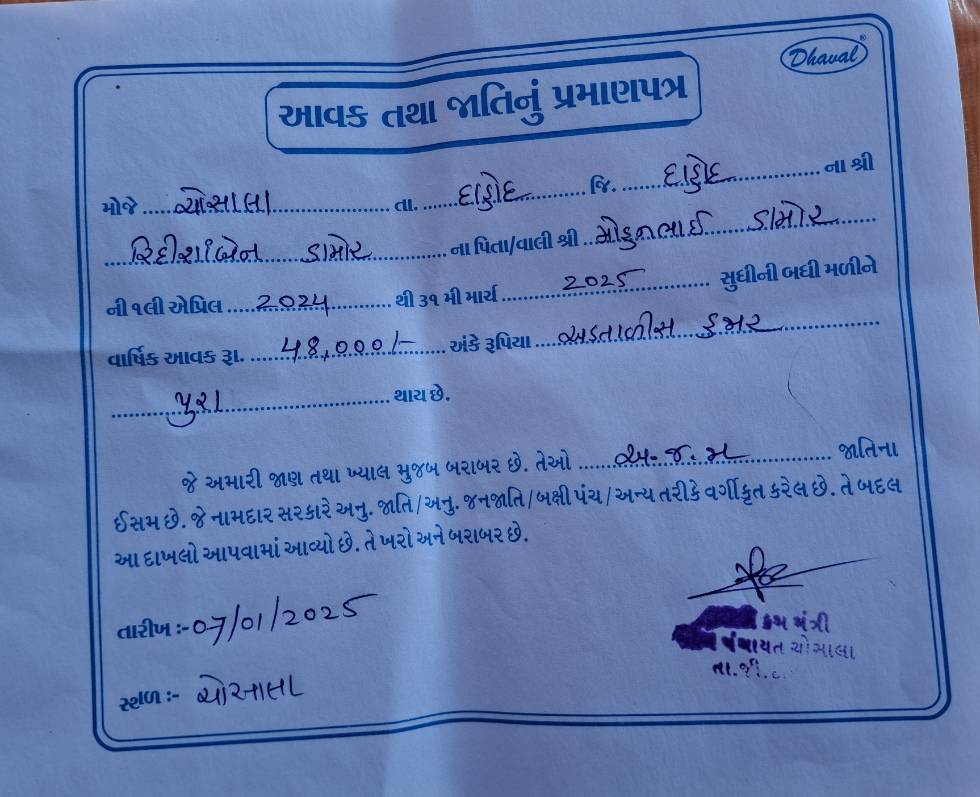 Dhaval
આવક તથા જાતિનું પ્રમાણપત્ર
મોજે ચોસાલા તા. દાહોદ જિ. દાહોદ ના શ્રી
ડામોર ના પિતા/વાલી શ્રી ડામોર
ની ૧લી એપ્રિલ 2024 થી ૩૧ મી માર્ચ 2025 સુધીની બધી મળીને
વાર્ષિક આવક રૂા. 48,000/- અંકે રૂપિયા અડતાળીસ હજાર
પુરા થાય છે.
જે અમારી જાણ તથા ખ્યાલ મુજબ બરાબર છે. તેઓ અ.જ.જા જાતિના
ઈસમ છે. જે નામદાર સરકારે અનુ. જાતિ/અનુ. જનજાતિ/બક્ષી પંચ/અન્ય તરીકે વર્ગીકૃત કરેલ છે. તે બદલ
આ દાખલો આપવામાં આવ્યો છે. તે ખરો અને બરાબર છે.
તારીખ :- 07/01/2025
મંત્રી
પંચાયત ચોસાલા
તા.જી.
સ્થળ :- ચોસાલા